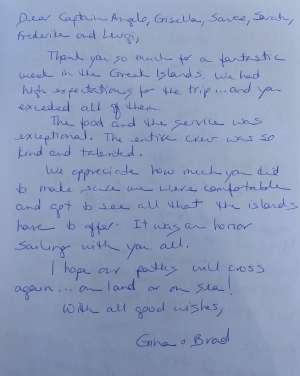 Dear Captain Angelo, Gisella, Sarah,
Frederike and Luigi,
Thank you so much for a fantastic
week in the Greek Islands. We had
high expectations for the trip...and you
exceded all of them.
The food and the service was
exceptional. The entire crew was so
kind and talented.
We appreciate how much you did
to make sure we were comfortable
and got to see all that the islands
have to offer. It was an honor
sailing with you all.
I hope our paths will cross
again... on land or on sea!
With all good wishes,
Brad